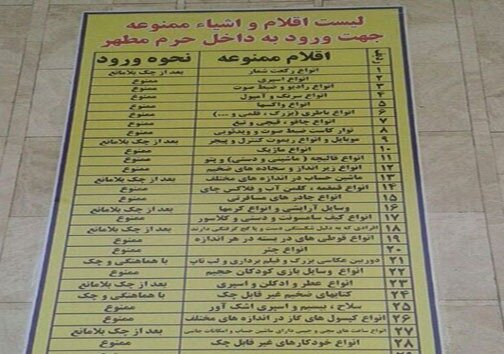 لیست اقلام و اشیاء ممنوعه
جهت ورود به داخل حرم مطهر
ردیف اقلام ممنوعه نحوه ورود
۱ انواع رکعت شمار بعد از چک بلامانع
۲ انواع اسپری ممنوع
۳ انواع رادیو و ضبط صوت ممنوع
۴ انواع سرنگ و آمپول ممنوع
۵ انواع واکسها ممنوع
۶ انواع باطری (بزرگ ، قلمی و ...) ممنوع
۷ انواع چاقو ، قیچی و تیغ ممنوع
۸ نوار کاست ضبط صوت و ویدئویی ممنوع
۹ موبایل و انواع ریموت کنترل و پیجر بعد از چک بلامانع
۱۰ انواع ماژیک ممنوع
۱۱ انواع قالیچه (ماشینی و دستی) و پتو ممنوع
۱۲ انواع زیر انداز و سجاده های ضخیم ممنوع
۱۳ ماشین حساب در اندازه های مختلف بعد از چک بلامانع
۱۴ انواع قمقمه ، کلمن آب و فلاکس چای ممنوع
۱۵ انواع چادر های مسافرتی ممنوع
۱۶ وسایل آرایشی و انواع کرمها بعد از چک بلامانع
۱۷ انواع کیف سامسونت و دستی و کلاسور ممنوع
۱۸ افرادی که به دلیل شکستگی دست و یا گچ گرفتگی دارند بعد از چک بلامانع
۱۹ انواع قوطی های در بسته در هر اندازه ممنوع
۲۰ انواع چتر ممنوع
۲۱ دوربین عکاسی بزرگ و فیلم برداری و لب تاپ با هماهنگی و چک
۲۲ انواع وسایل بازی کودکان حجیم ممنوع
۲۳ انواع عطر و ادکلن و اسپری بعد از چک بلامانع
۲۴ کتابهای ضخیم غیر قابل چک با هماهنگی و چک
۲۵ سلاح ، بیسیم و اسپری اشک آور ممنوع
۲۶ انواع کپسول های گاز در اندازه های مختلف ممنوع
۲۷ انواع ساعت های مچی و جیبی دارای ماشین حساب و امکانات جانبی بعد از چک بلامانع
۲۸ انواع خودکارهای غیر قابل چک ممنوع